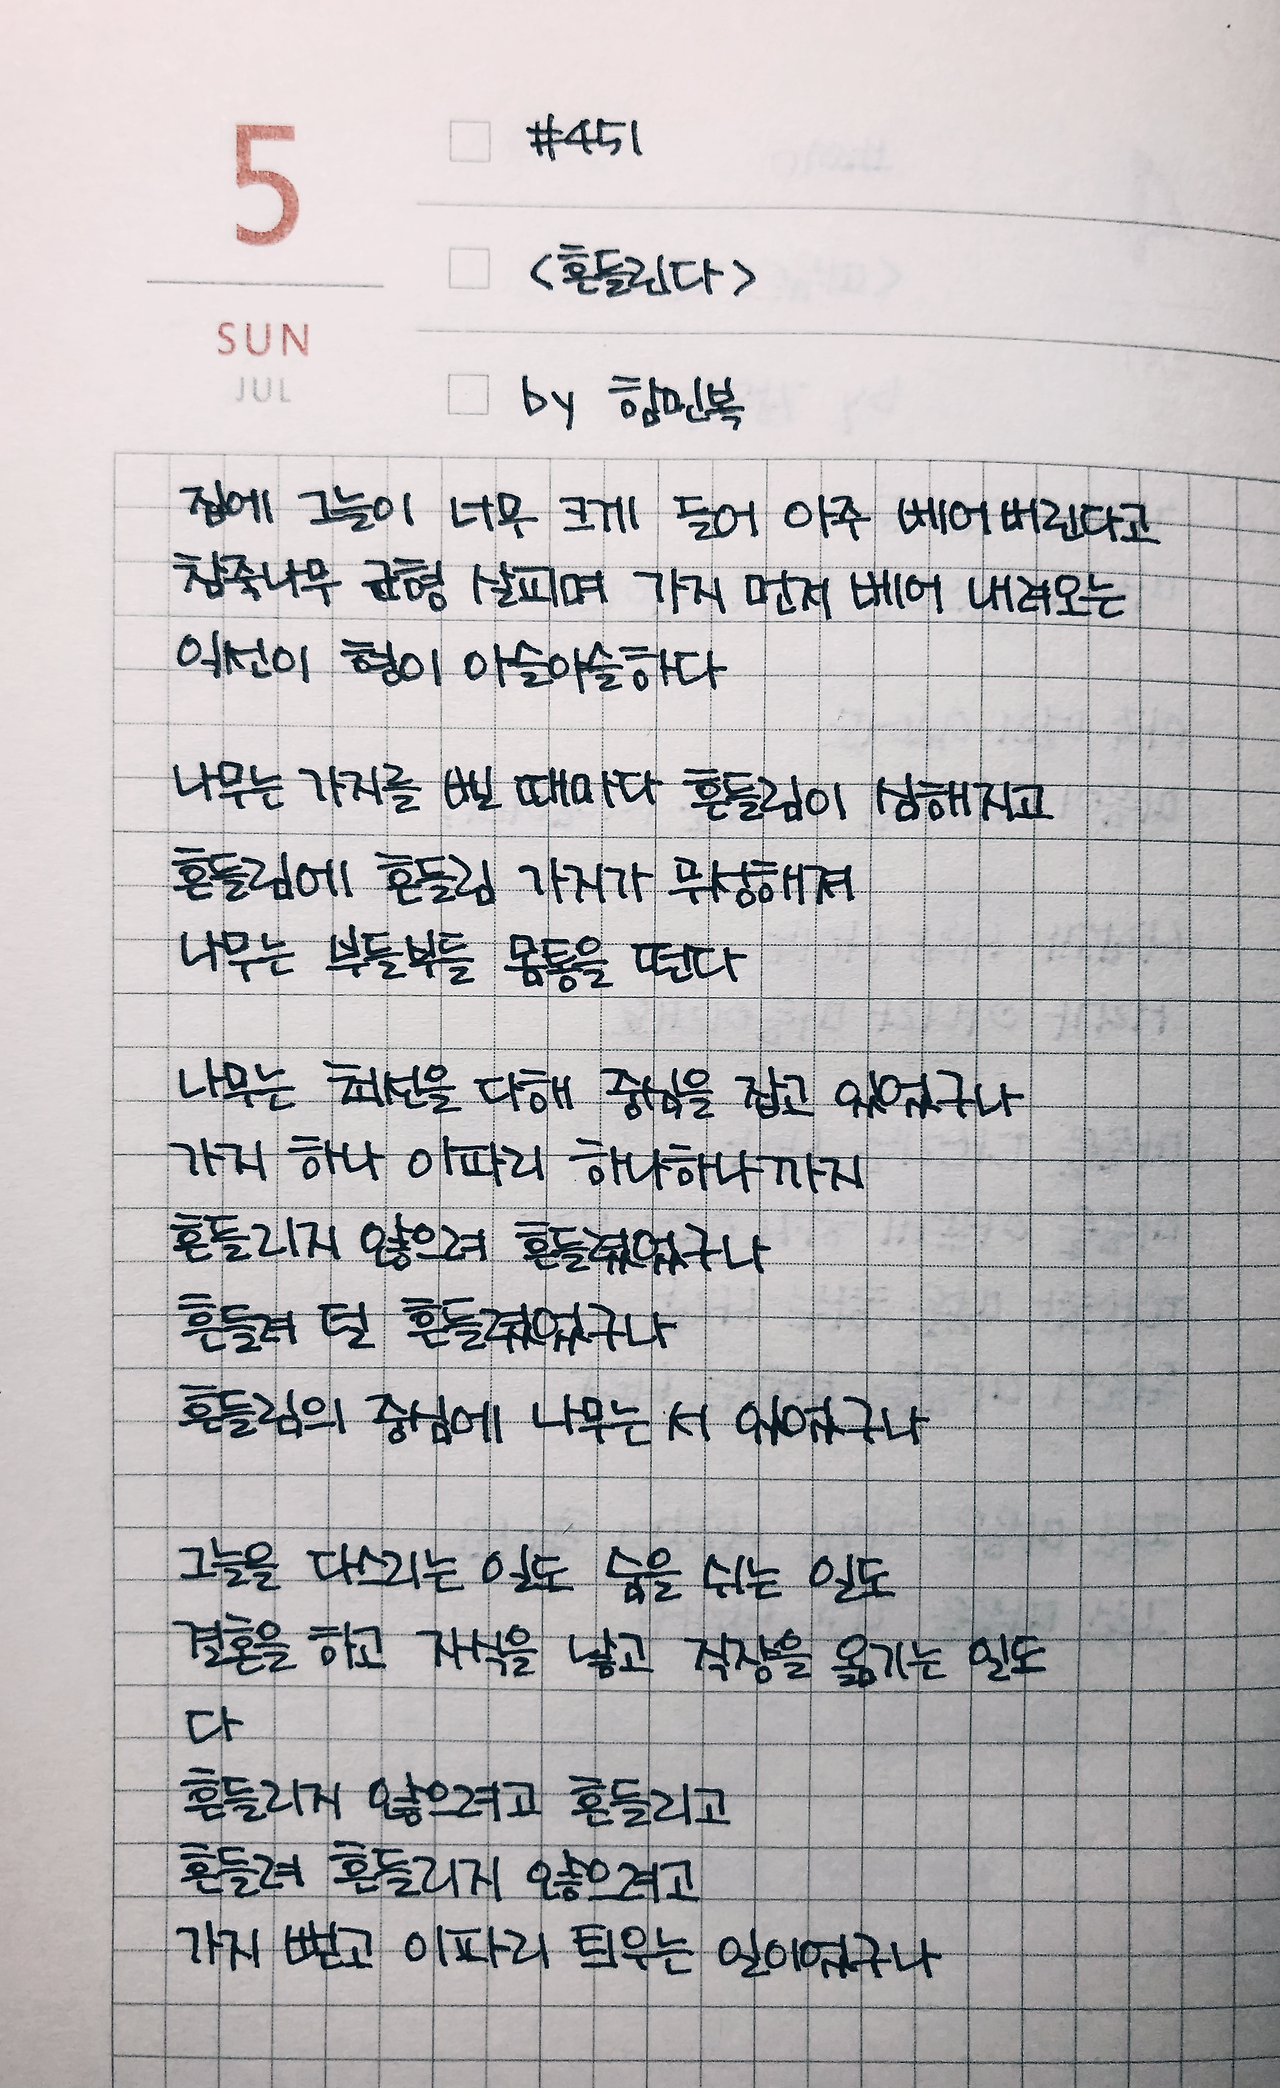 5
SUN
JUL
#451
<흔들린다>
by 함민복
집에 그늘이 너무 크게 들어 아주 베어버린다고
참죽나무 균형 살피며 가지 먼저 베어 내려오는
익선이 형이 아슬아슬하다
나무는 가지를 벨 때마다 흔들림이 심해지고
흔들림에 흔들림 가지가 무성해져
나무는 부들부들 몸통을 떤다
나무는 최선을 다해 중심을 잡고 있었구나
가지 하나 이파리 하나하나까지
흔들리지 않으려 흔들렸었구나
흔들려 덜 흔들렸었구나
흔들림의 중심에 나무는 서 있었구나
그늘을 다스리는 일도 숨을 쉬는 일도
결혼을 하고 자식을 낳고 직장을 옮기는 일도
다
흔들리지 않으려고 흔들리고
흔들려 흔들리지 않으려고
가지 뻗고 이파리 틔우는 일이었구나